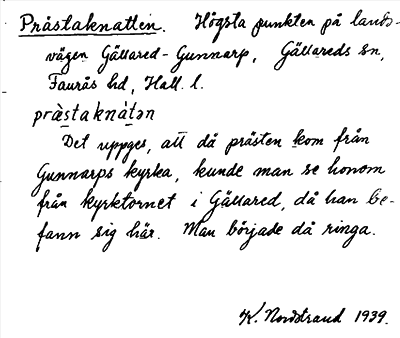 Prästaknatten. Högsta punkten på lands-
vägen Gällared-Gunnarp, Gällareds sn,
Faurås hd, Hall. l.
præ̀staknátən
Det uppges, att då prästen kom från
Gunnarps kyrka, kunde man se honom
från kyrktornet i Gällared, då han be-
fann sig här. Man började då ringa.
K. Nordstrand 1939.